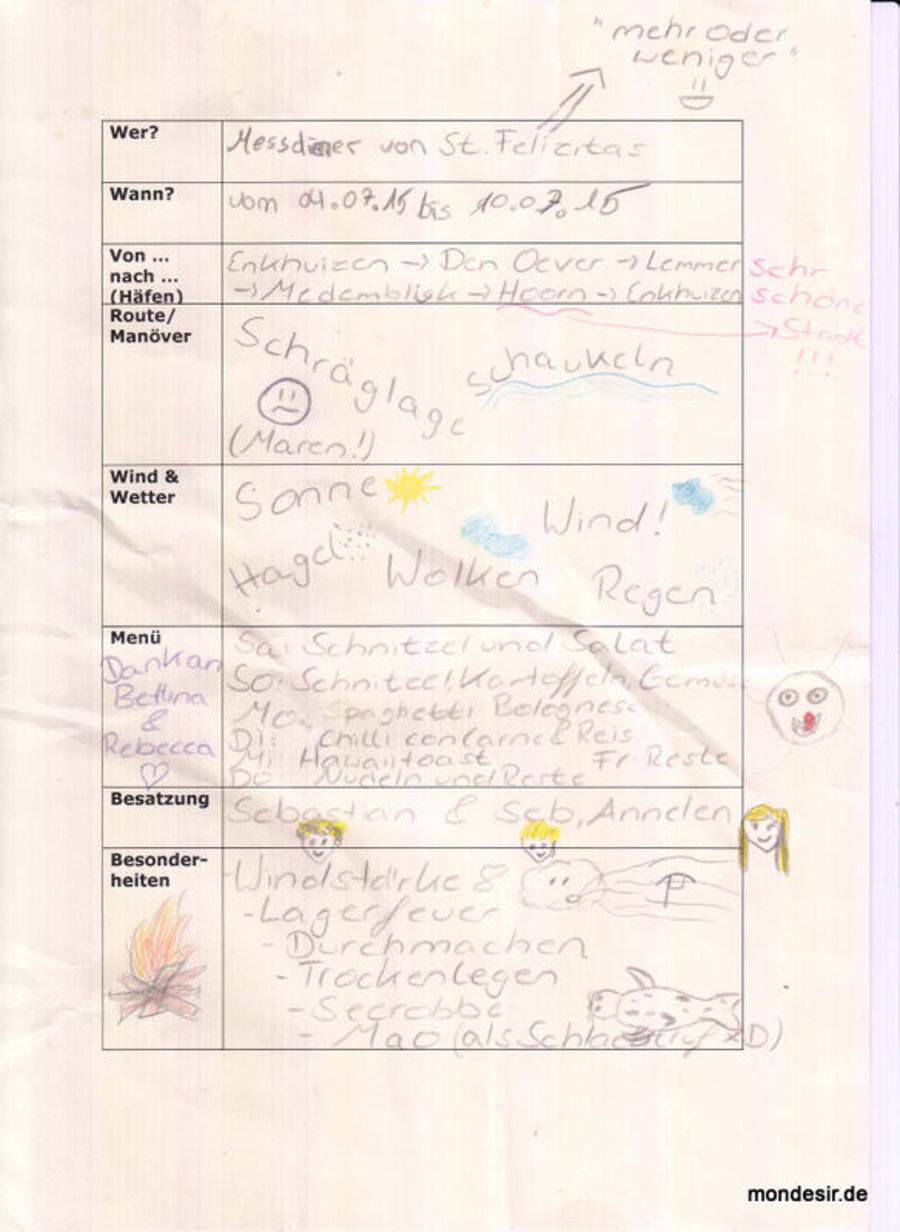 "mehr oder
weniger"
Wer?
Messdiener von St. Felizitas
Wann?
vom 04.07.15 bis 10.07.15
Von ...
nach ...
(Häfen)
Enkhuizen -> Den Oever -> Lemmer
-> Medemblik -> Hoorn -> Enkhuizen
Sehr
schöne
Stadt
!!!
Route/
Manöver
Schräglage
schaukeln
(Maren!)
Wind &
Wetter
Sonne
Wind!
Hagel
Wolken
Regen
Menü
Dank an
Bettina
&
Rebecca
Sa: Schnitzel und Salat
So: Schnitzel, Kartoffeln, Gemüse
Mo: Spaghetti Bolognese
Di: Chilli con Carne & Reis
Mi: Hawaiitoast Fr: Reste
Do: Nudeln und Reste
Besatzung
Sebastian & Seb, Annelen
Besonder-
heiten
-Windstärke 8
-Lagerfeuer
- Durchmachen
- Trockenlegen
- Seerobbe
- Mao (als Schlachtruf XD)
mondesir.de